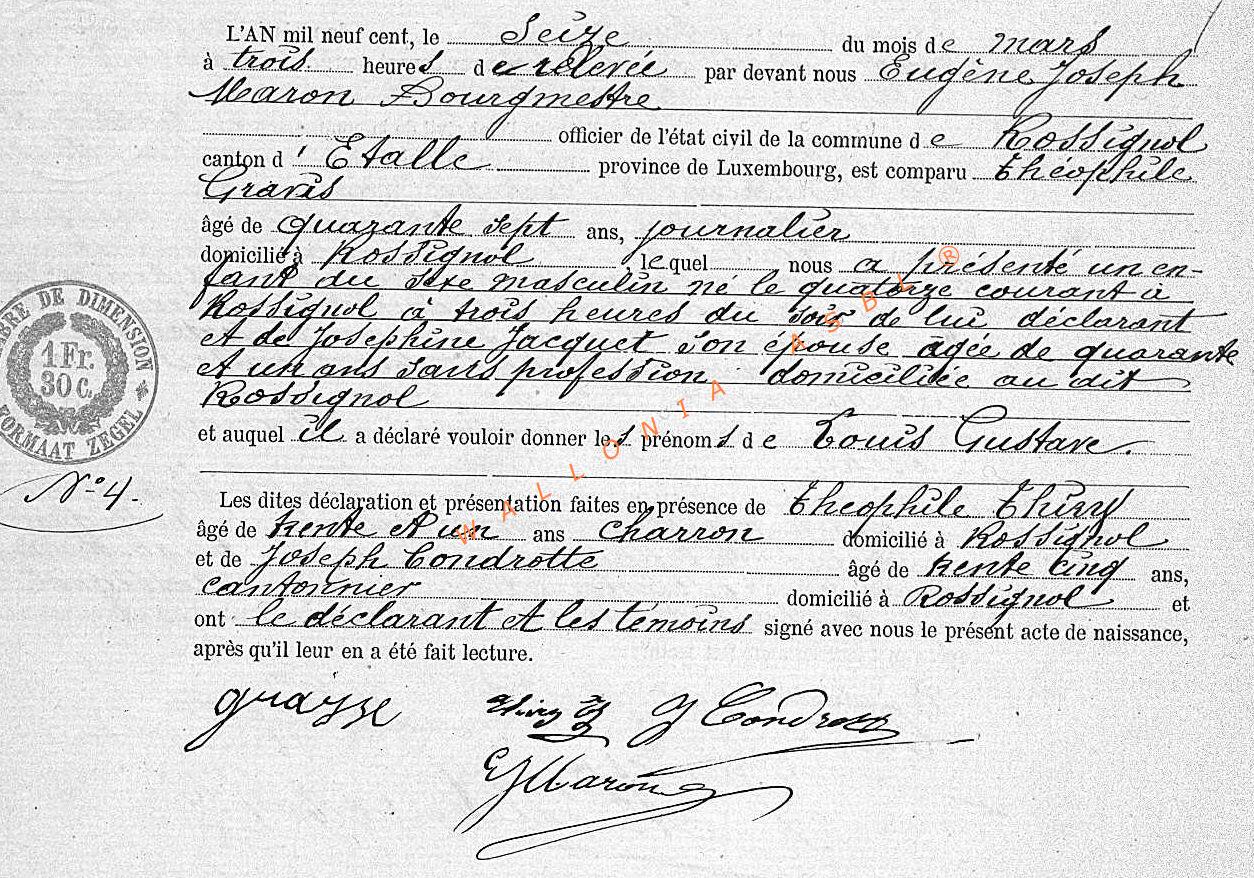 L'AN mil neuf cent, le Seize du mois de mars
à trois heures de relevée par devant nous Eugène Joseph
Maron Bourgmestre
officier de l'état civil de la commune de Rossignol
canton d'Etalle province de Luxembourg, est comparu théophile
Gravis
âgé de quarante sept ans, journalier
domicilié à Rossignol lequel nous a présenté un en-
fant du sexe masculin né le quatorze courant à
Rossignol à trois heures du soir de lui déclarant
et de Josephine Jacquet son épouse agée de quarante
et un ans sans profession domiciliée au dit
Rossignol
et auquel il a déclaré vouloir donner les prénoms de Louis Gustave.
Les dites déclaration et présentation faites en présence de théophile thiry
âgé de trente et un ans charron domicilié à Rossignol
et de Joseph Condrotte âgé de trente cinq ans,
cantonnier domicilié à Rossignol et
ont le déclarant et les témoins signé avec nous le présent acte de naissance,
après qu'il leur en a été fait lecture.
thiry J Condrotte
EJMaron
N° 4.
TIMBRE DE DIMENSION
1 Fr.
30 C.
FORMAAT ZEGEL
WALLONIA ASBL ®